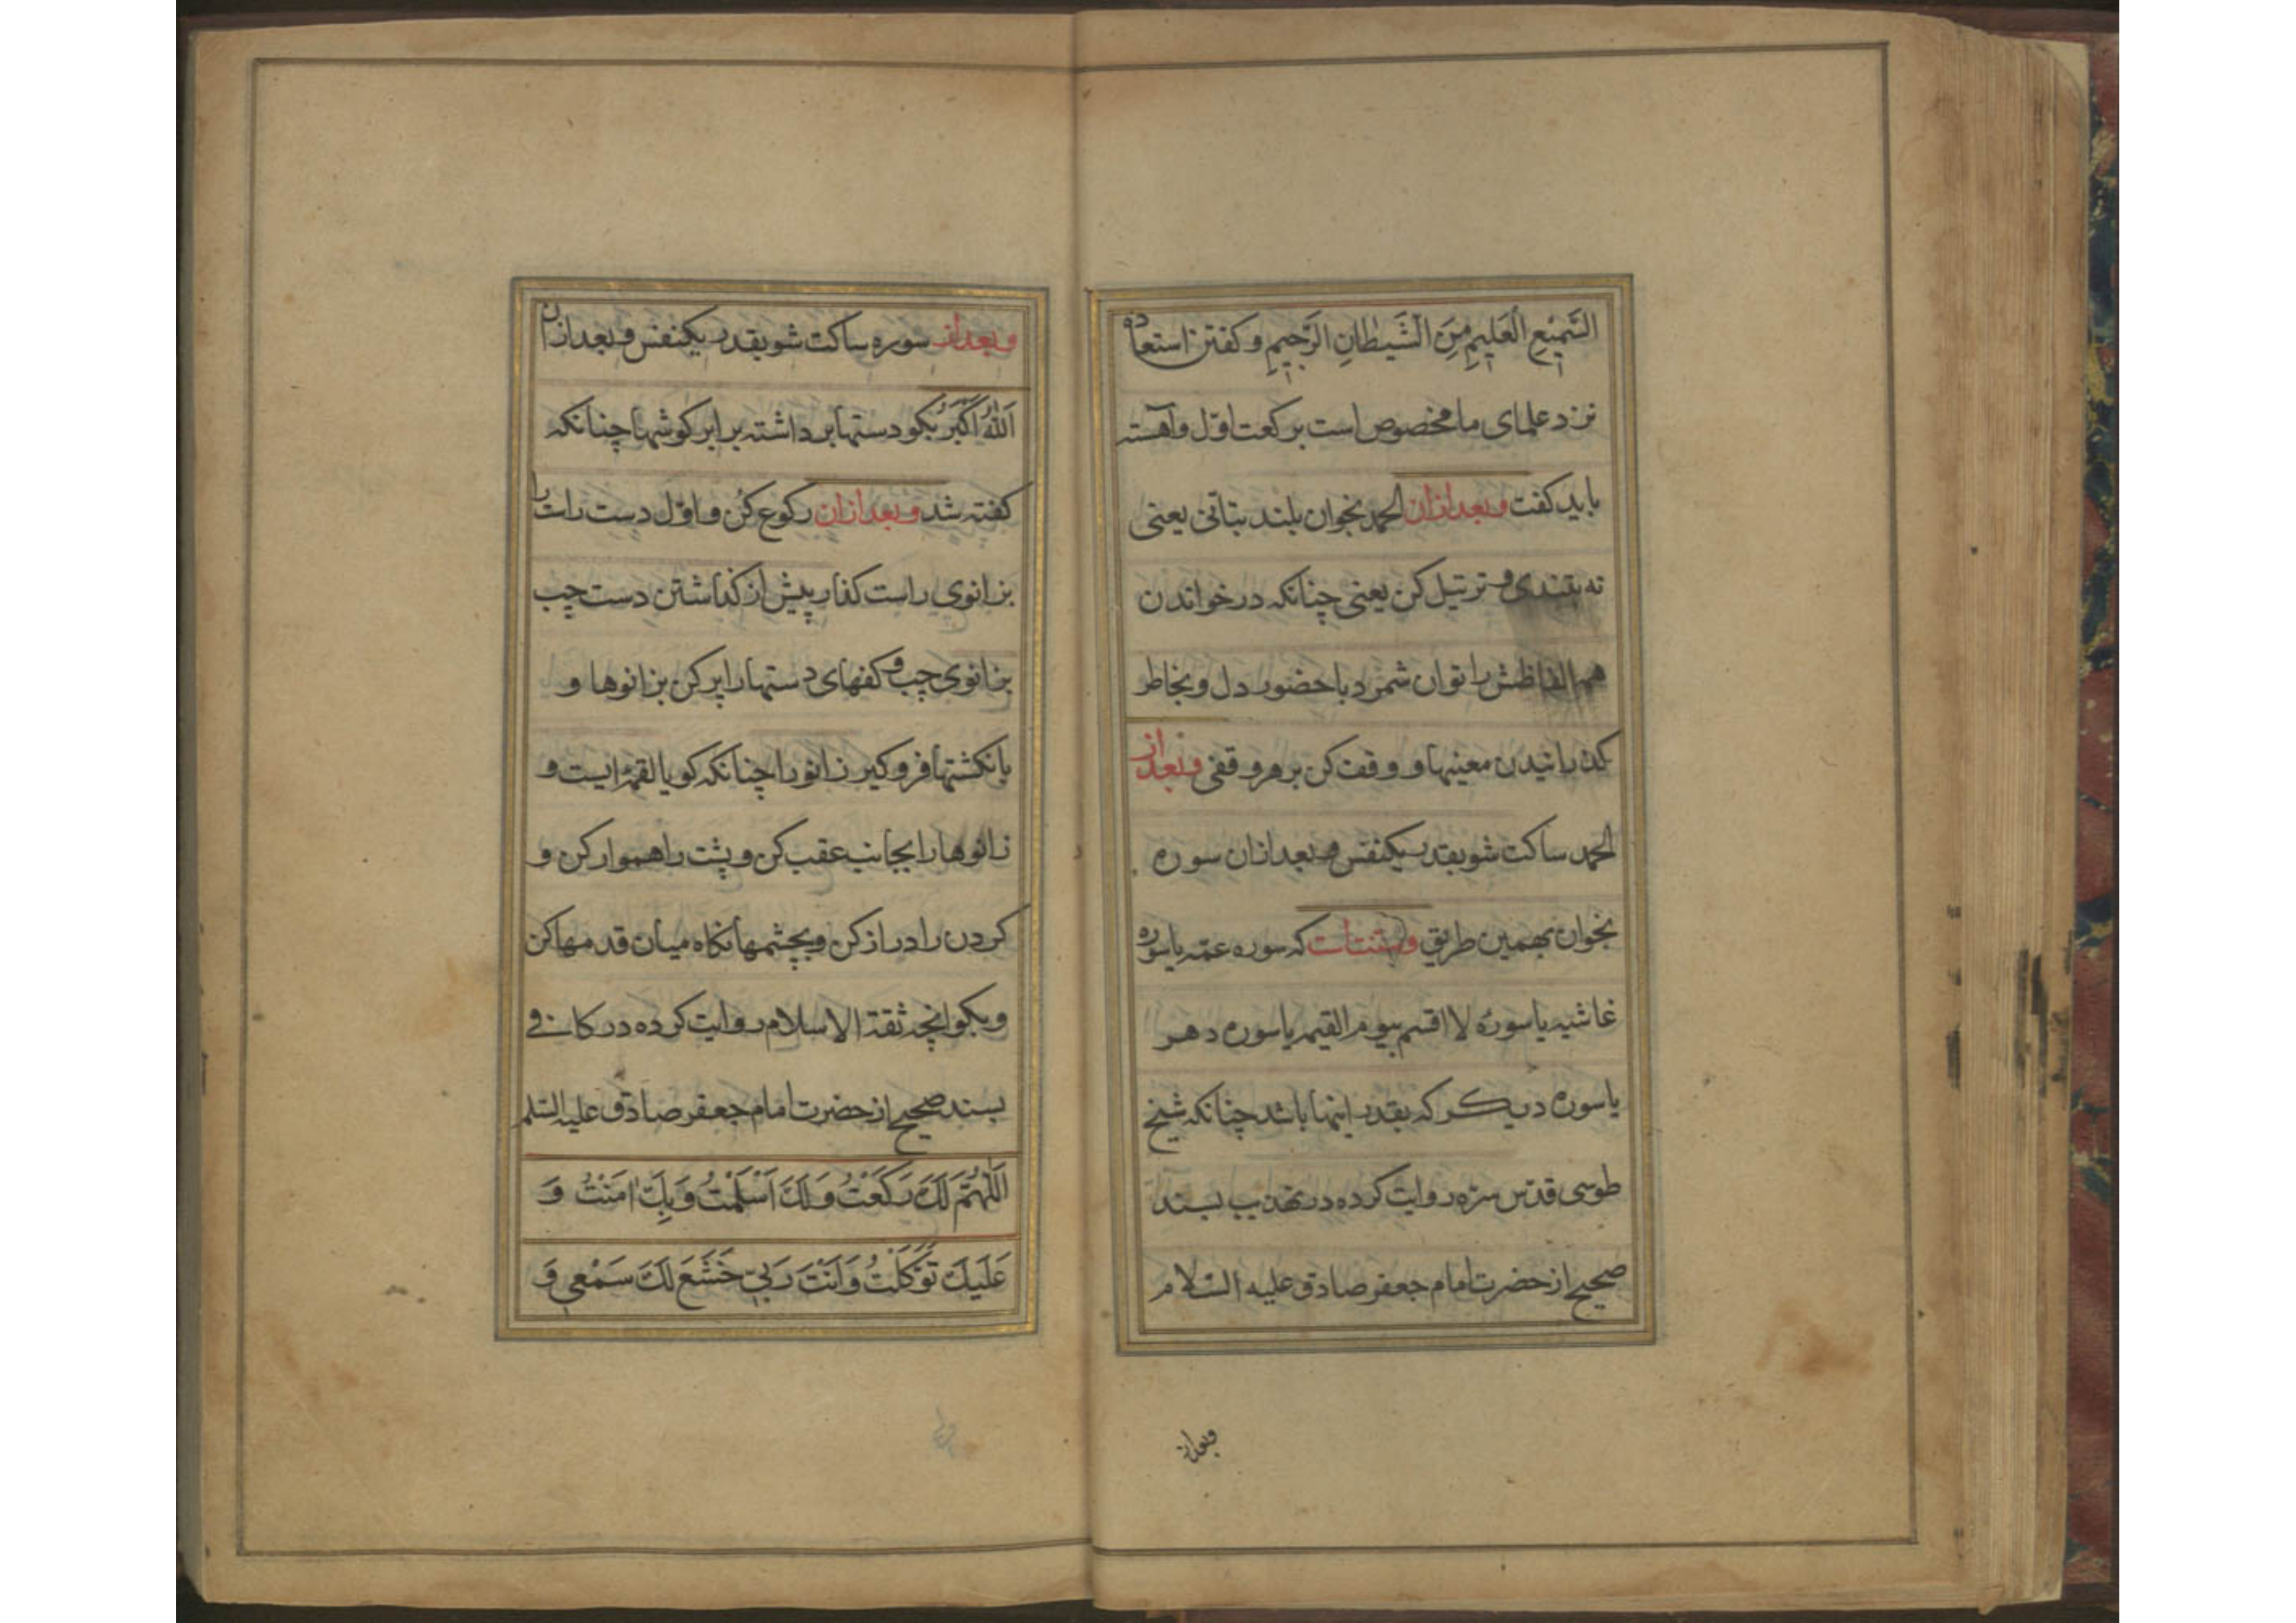 السَّمِیْعِ الْعَلِیْمِ مِنَ الشَّیْطَانِ الرَّجِیْمِ و کفتن استعاذه
نزد علمای ما مخصوص است برکعت اوّل و آهسته
باید کفت و بعد از ان الحمد بخوان بلند بتأنی یعنی
نه بتندی و ترتیل کن یعنی چنانکه در خواندن
همه الفاظش را توان شمرد با حضور دل و بخاطر
کذرانیدن معنیها و وقف کن بر هر وقفی و بعد از
الحمد ساکت شو بقدر یکنفس و بعد از ان سوره
بخوان بهمین طریق و سنت است که سوره عمّ یا سوره
غاشیه یا سوره لا اقسم بیوم القیمه یا سوره دهر
یا سوره دیکر که بقدر اینها باشد چنانکه شیخ
طوسی قدّس سرّه روایت کرده در تهذیب بسند
صحیح از حضرت امام جعفر صادق علیه السّلام
و بعد از
و بعد از سوره ساکت شو بقدر یکنفس و بعد از ان
اَللّٰهُ اَکْبَرُ بکو دستها برداشته برابر کوشها چنانکه
کفته شد و بعد از ان رکوع کُن و اوّل دست راست را
بزانوی راست کذار پیش از کذاشتن دست چپ
بزانوی چپ و کفهای دستها را پر کن بزانوها و
بانکشتها فرو کیر زانو را چنانکه کویا لقمهٔ ایست و
زانوها را بجانب عقب کن و پشت را هموار کن و
کردن را دراز کن و بچشمها نکاه میان قدمها کن
و بکو انچه ثقة الاسلام روایت کرده در کافی
بسند صحیح از حضرت امام جعفر صادق علیه السّلم
اَللّٰهُمَّ لَكَ رَکَعْتُ وَ لَكَ اَسْلَمْتُ وَ بِكَ اٰمَنْتُ وَ
عَلَیْكَ تَوَکَّلْتُ وَ اَنْتَ رَبّی خَشَعَ لَكَ سَمْعی وَ